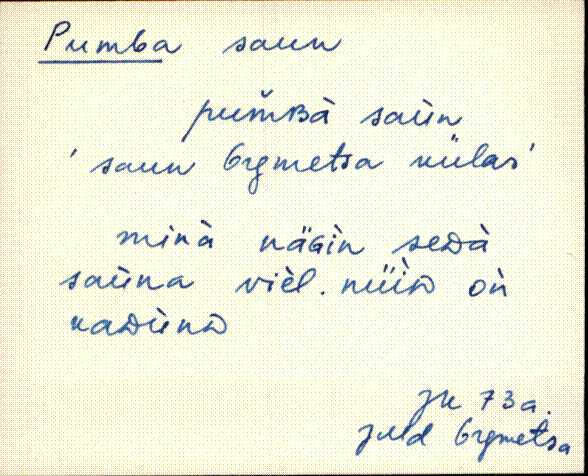 Pumba saun
pum̆ʙà saùn
'saun Õrgmetsa külas'
minà näɢìn seᴅà
saùna vièl. nüìᴅ oǹ
kaᴅùnᴅ
JK 73a.
Jõd Õrgmetsa